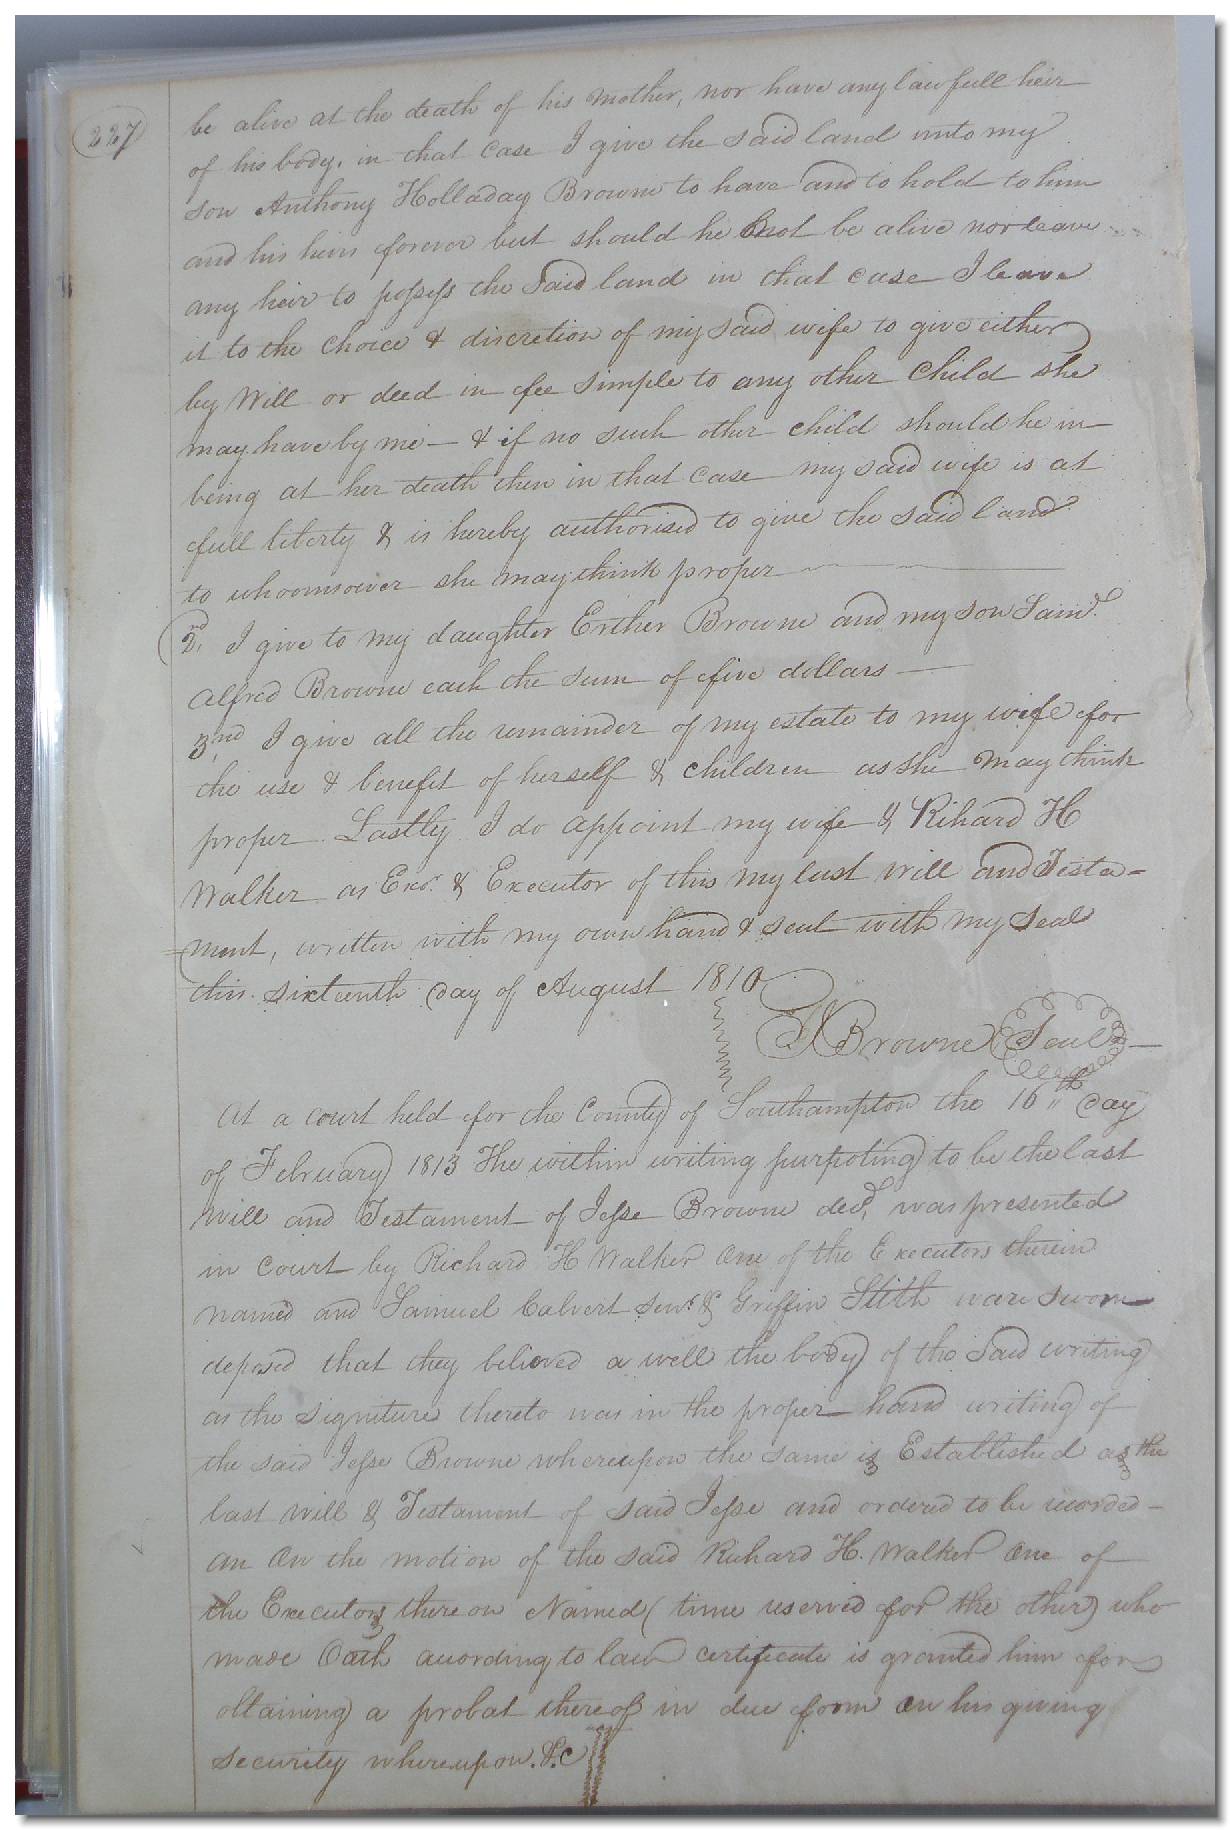 227
be alive at the death of his Mother, nor have any lawfull heir
of his body, in that Case I give the said land unto my
son Anthony Holladay Browne to have and to hold to him
and his heirs forever but should he not be alive nor leave
any heir to possess the said land in that case I leave
it to the choice & discretion of my said wife to give either
by Will or deed in fee simple to any other Child she
may have by me — & if no such other child should be in
being at her death then in that case my said wife is at
full liberty & is hereby authorised to give the said land
to whoomsoever she may think proper
2nd. I give to my daughter Esther Browne and my son Saml.
Alfred Browne each the sum of five dollars —
3nd I give all the remainder of my estate to my wife for
the use & benefit of herself & children as she may think
proper. Lastly I do appoint my wife & Rihard H
Walker as Exr. & Executor of this my last will and Testa-
=ment, written with my own hand & seal with my seal
this sixteenth day of August 1810
J Browne Seal
At a court held for the County of Southampton the 16th day
of February 1813 The within writing purpoting to be the last
Will and Testament of Jesse Browne decd, was presented
in Court by Richard H Walker one of the Executors therein
named and Samuel Calvert Senr. & Griffin Stith ware sworn
deposed that they believed a well the body of the said writing
as the signiture thereto was in the proper hand writing of
the said Jesse Browne whereupon the same is Established as the
last will & Testament of said Jesse and ordered to be recorded —
an On the motion of the said Richard H. Walker One of
the Executors there on Named (time reserved for the other) who
made Oath according to law certificate is granted him for
obtaining a probat thereof in due form on his giving
security whereupon. &.c